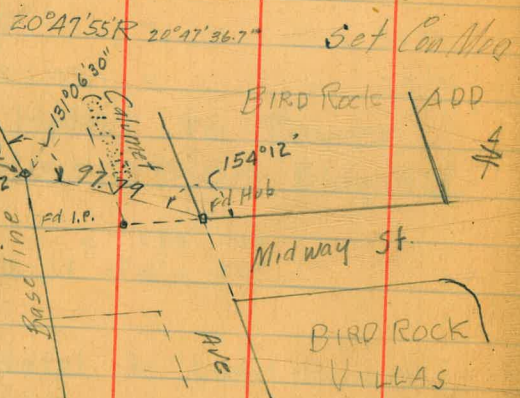 20°47'55"R 20°47'36.7"
Set Con Mon
BIRD Rock ADD
131°06'30"
Calumet
154°12'
97.79
Fd Hub
Fd. I.P.
Midway St.
Baseline
AVE
BIRD ROCK
VILLAS